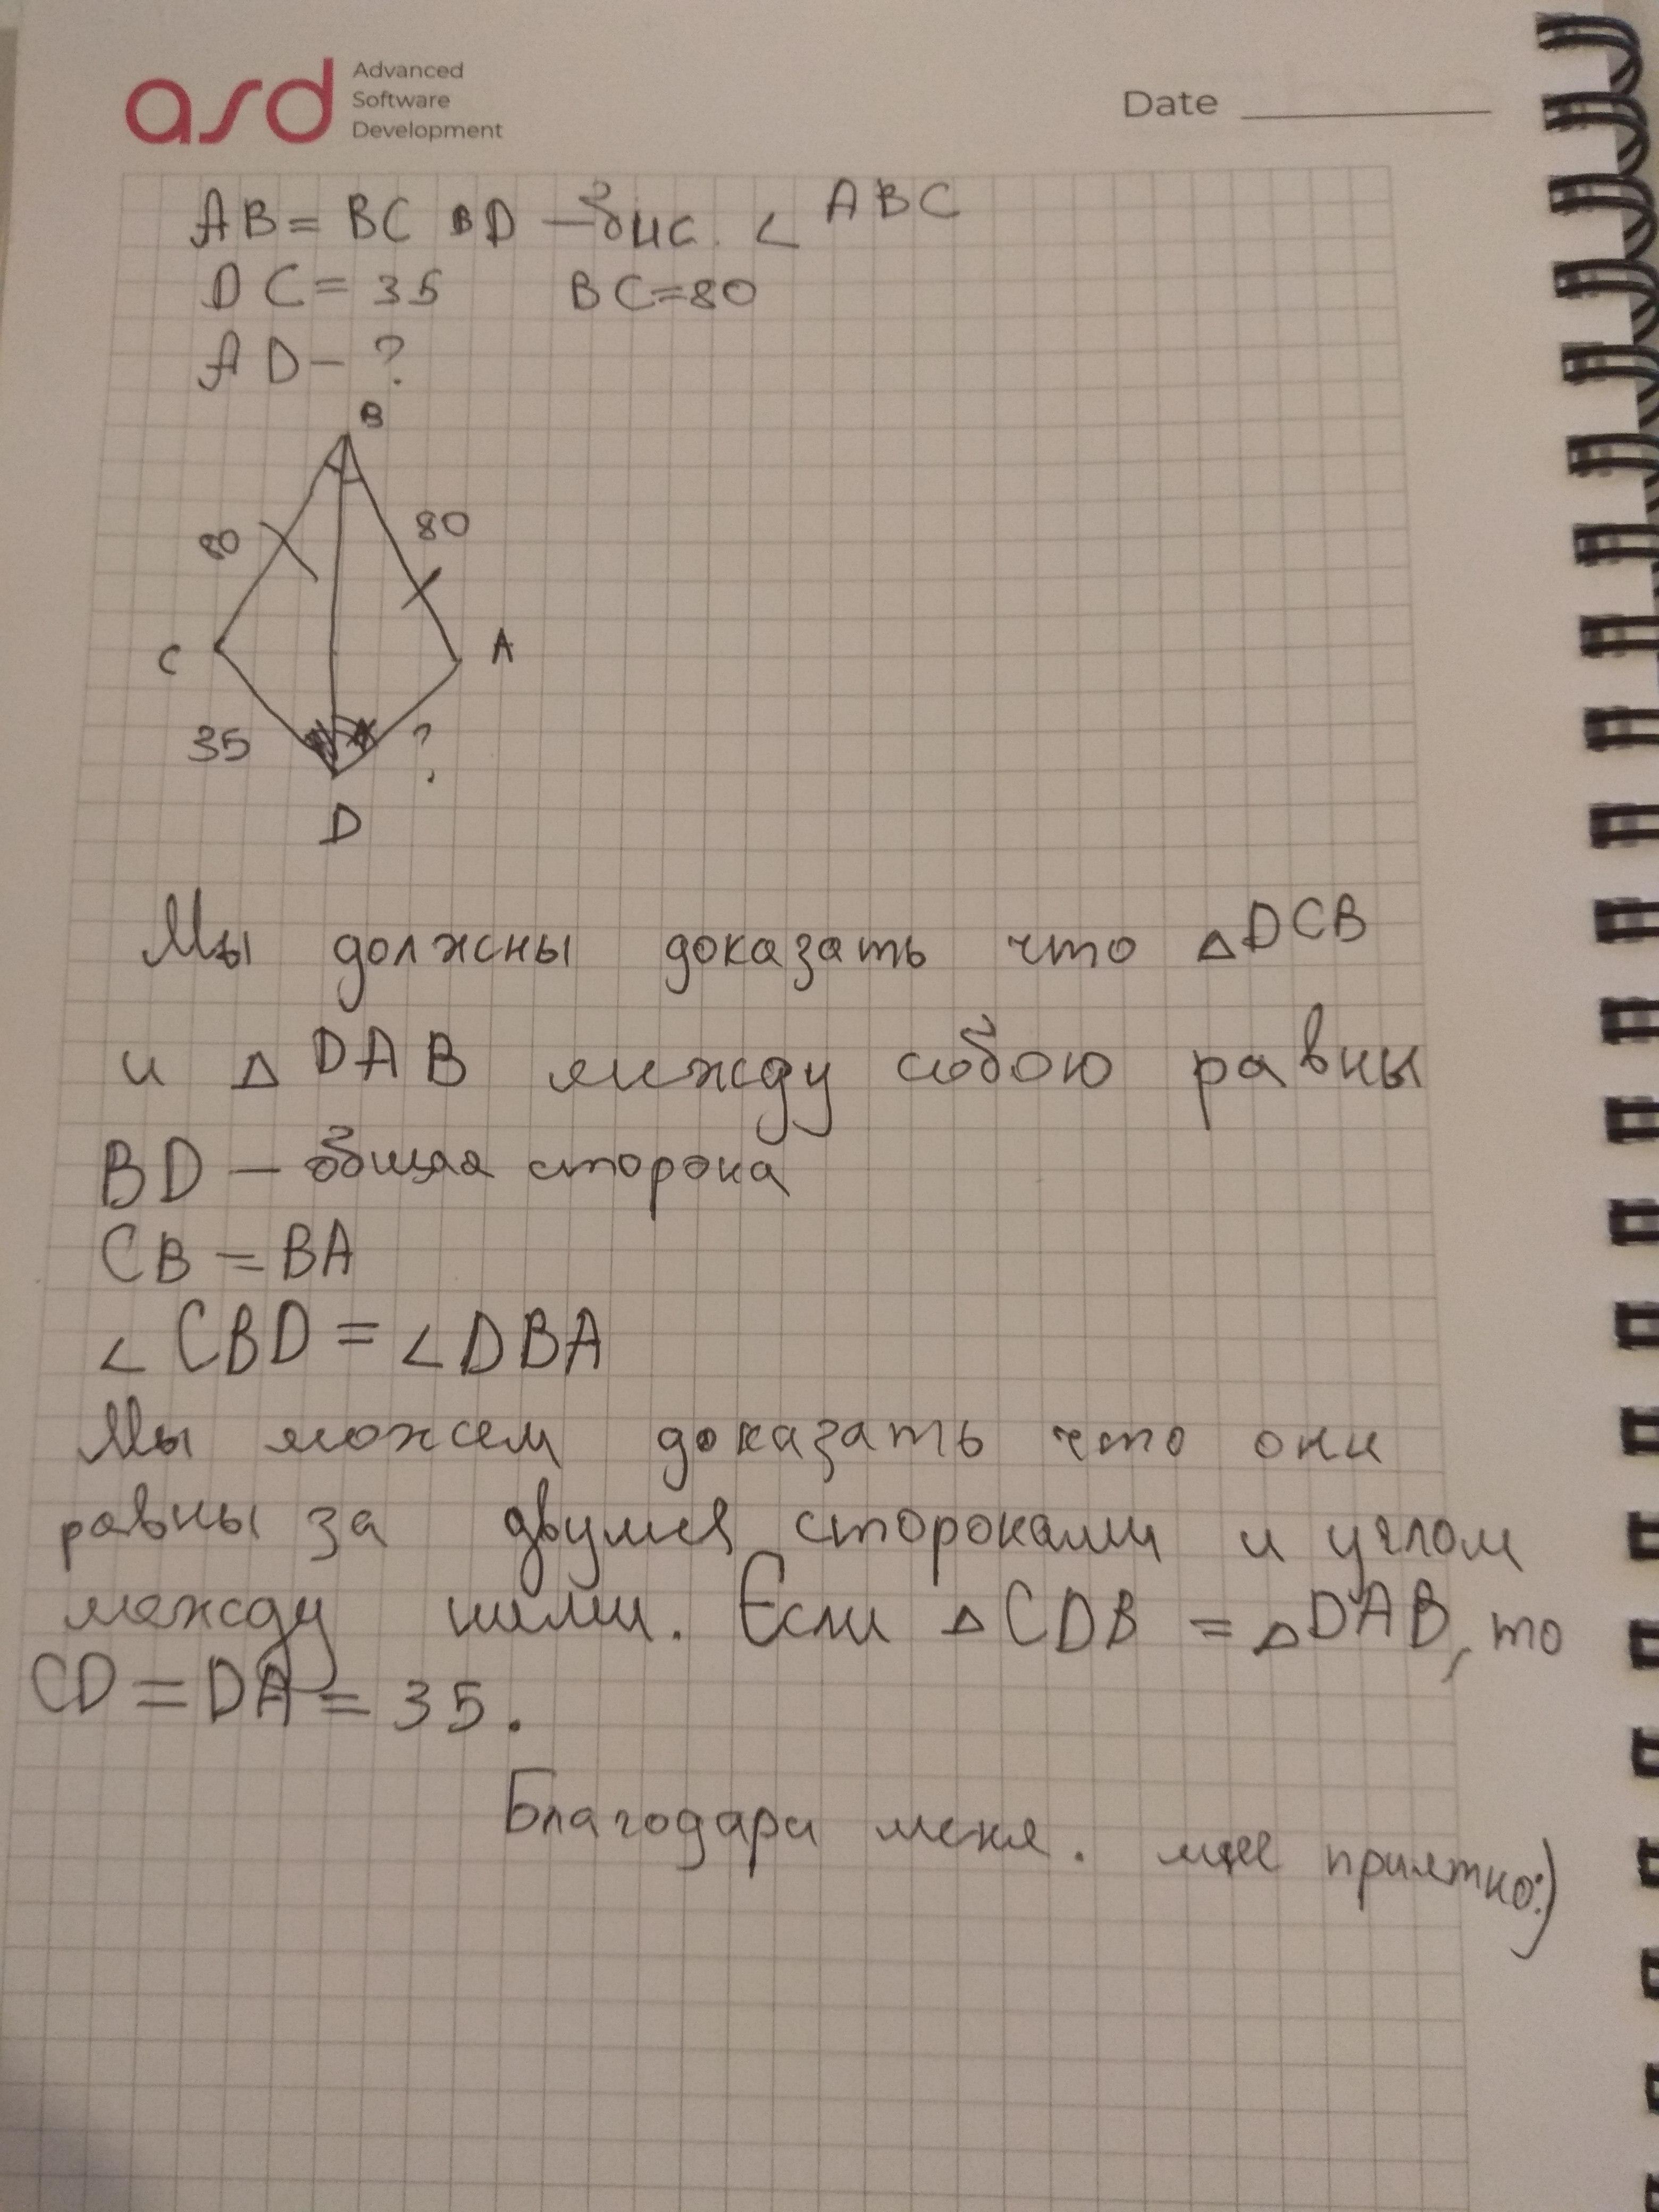 asd Advanced
Software
Development
Date
AB = BC BD – бис. ∠ ABC
DC = 35 BC=80
AD – ?
B
80 80
C A
35 ?
D
Мы должны доказать что △DCB
и △ DAB между собою равны
BD – общая сторона
CB = BA
∠ CBD = ∠DBA
Мы можем доказать что они
равны за двумя сторонами и углом
между ними. Если △CDB = △DAB, то
CD = DA = 35.
Благодари меня. мне приятно:)